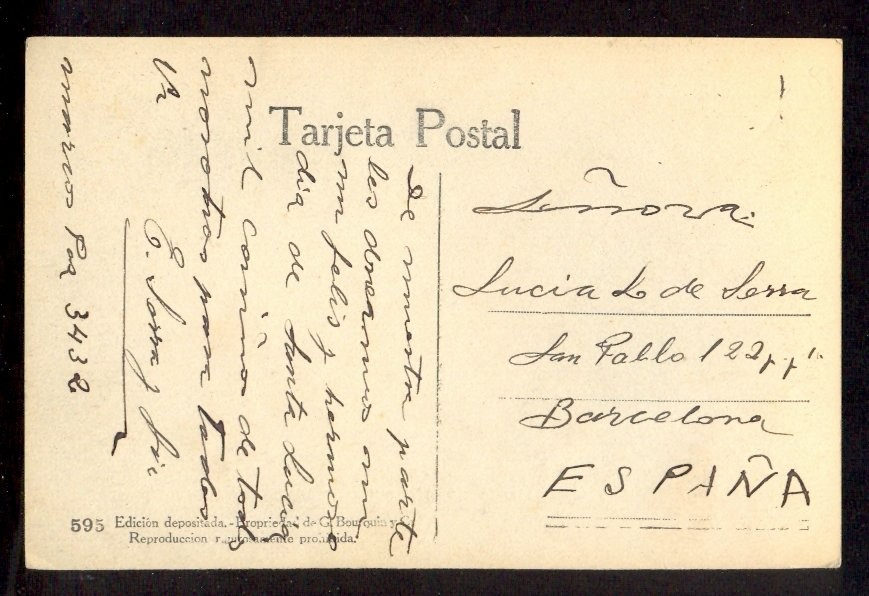 Tarjeta Postal
De nuestra parte
les deseamos un
un feliz y hermoso
dia de Santa Lucia
mil cariños de todos
nosotros para todos
Vs
E. Serra y
3432
Señora.
Lucia L. de Serra
San Pablo 122
Barcelona
ESPAÑA
595 Edición depositada.-Propriedad de G. Bourquin y
Reproduccion rigurosamente prohibida.